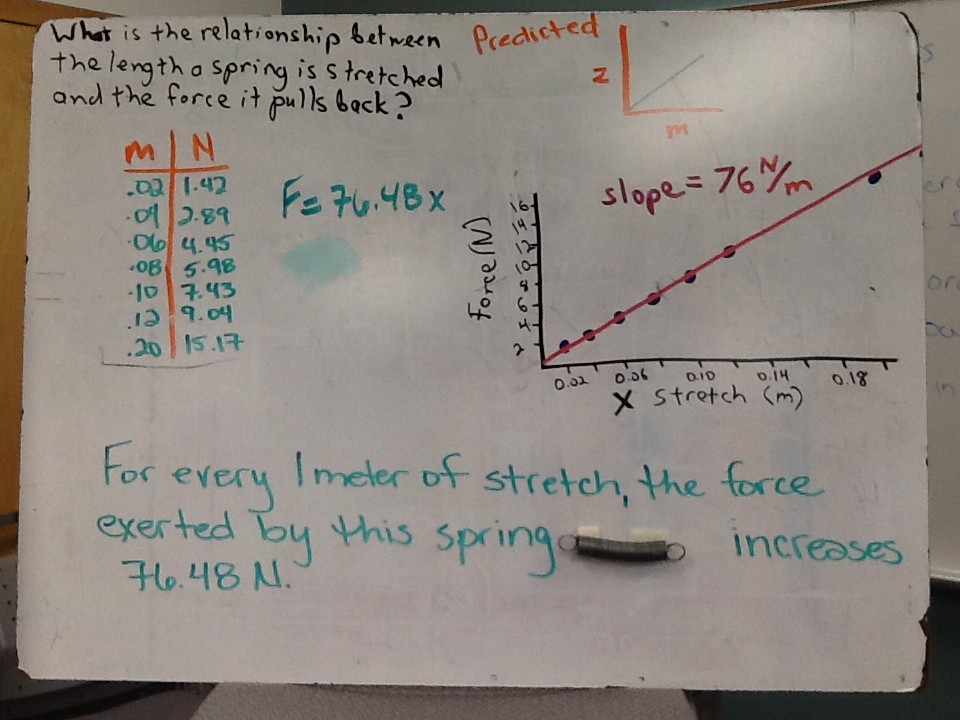 What is the relationship between
the length a spring is stretched
and the force it pulls back?
Predicted
N
m
m N
.02 1.42
.04 2.89
.06 4.45
.08 5.98
.10 7.43
.12 9.04
.20 15.17
F= 76.48x
slope = 76 N/m
Force (N)
16
14
12
10
8
6
4
2
0.02 0.06 0.10 0.14 0.18
X stretch (m)
For every 1 meter of stretch, the force
exerted by this spring increases
76.48 N.